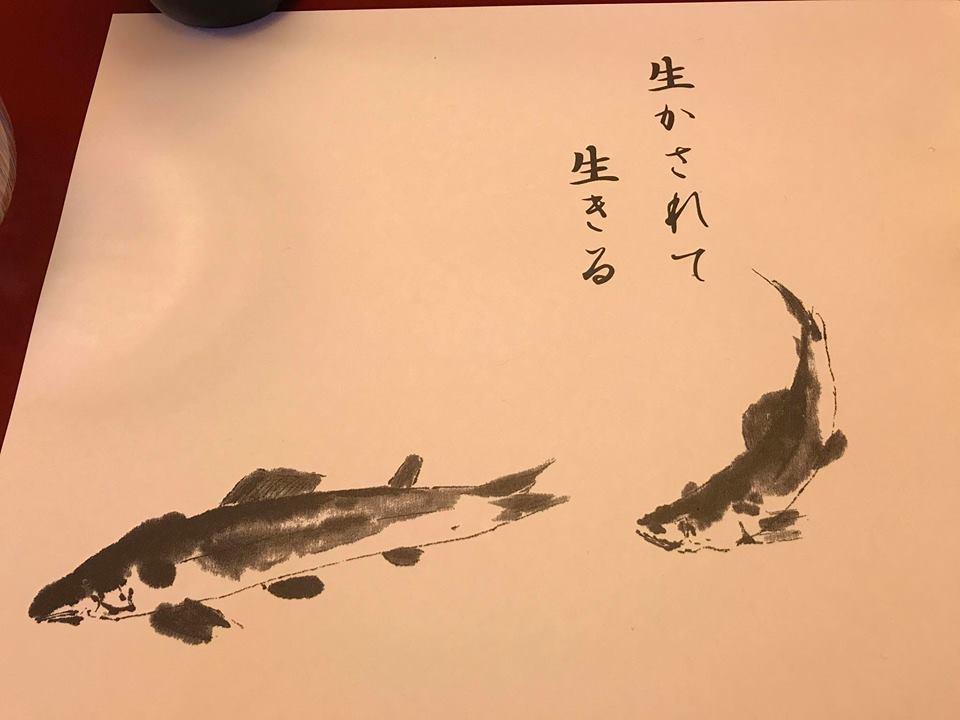 生かされて
生きる